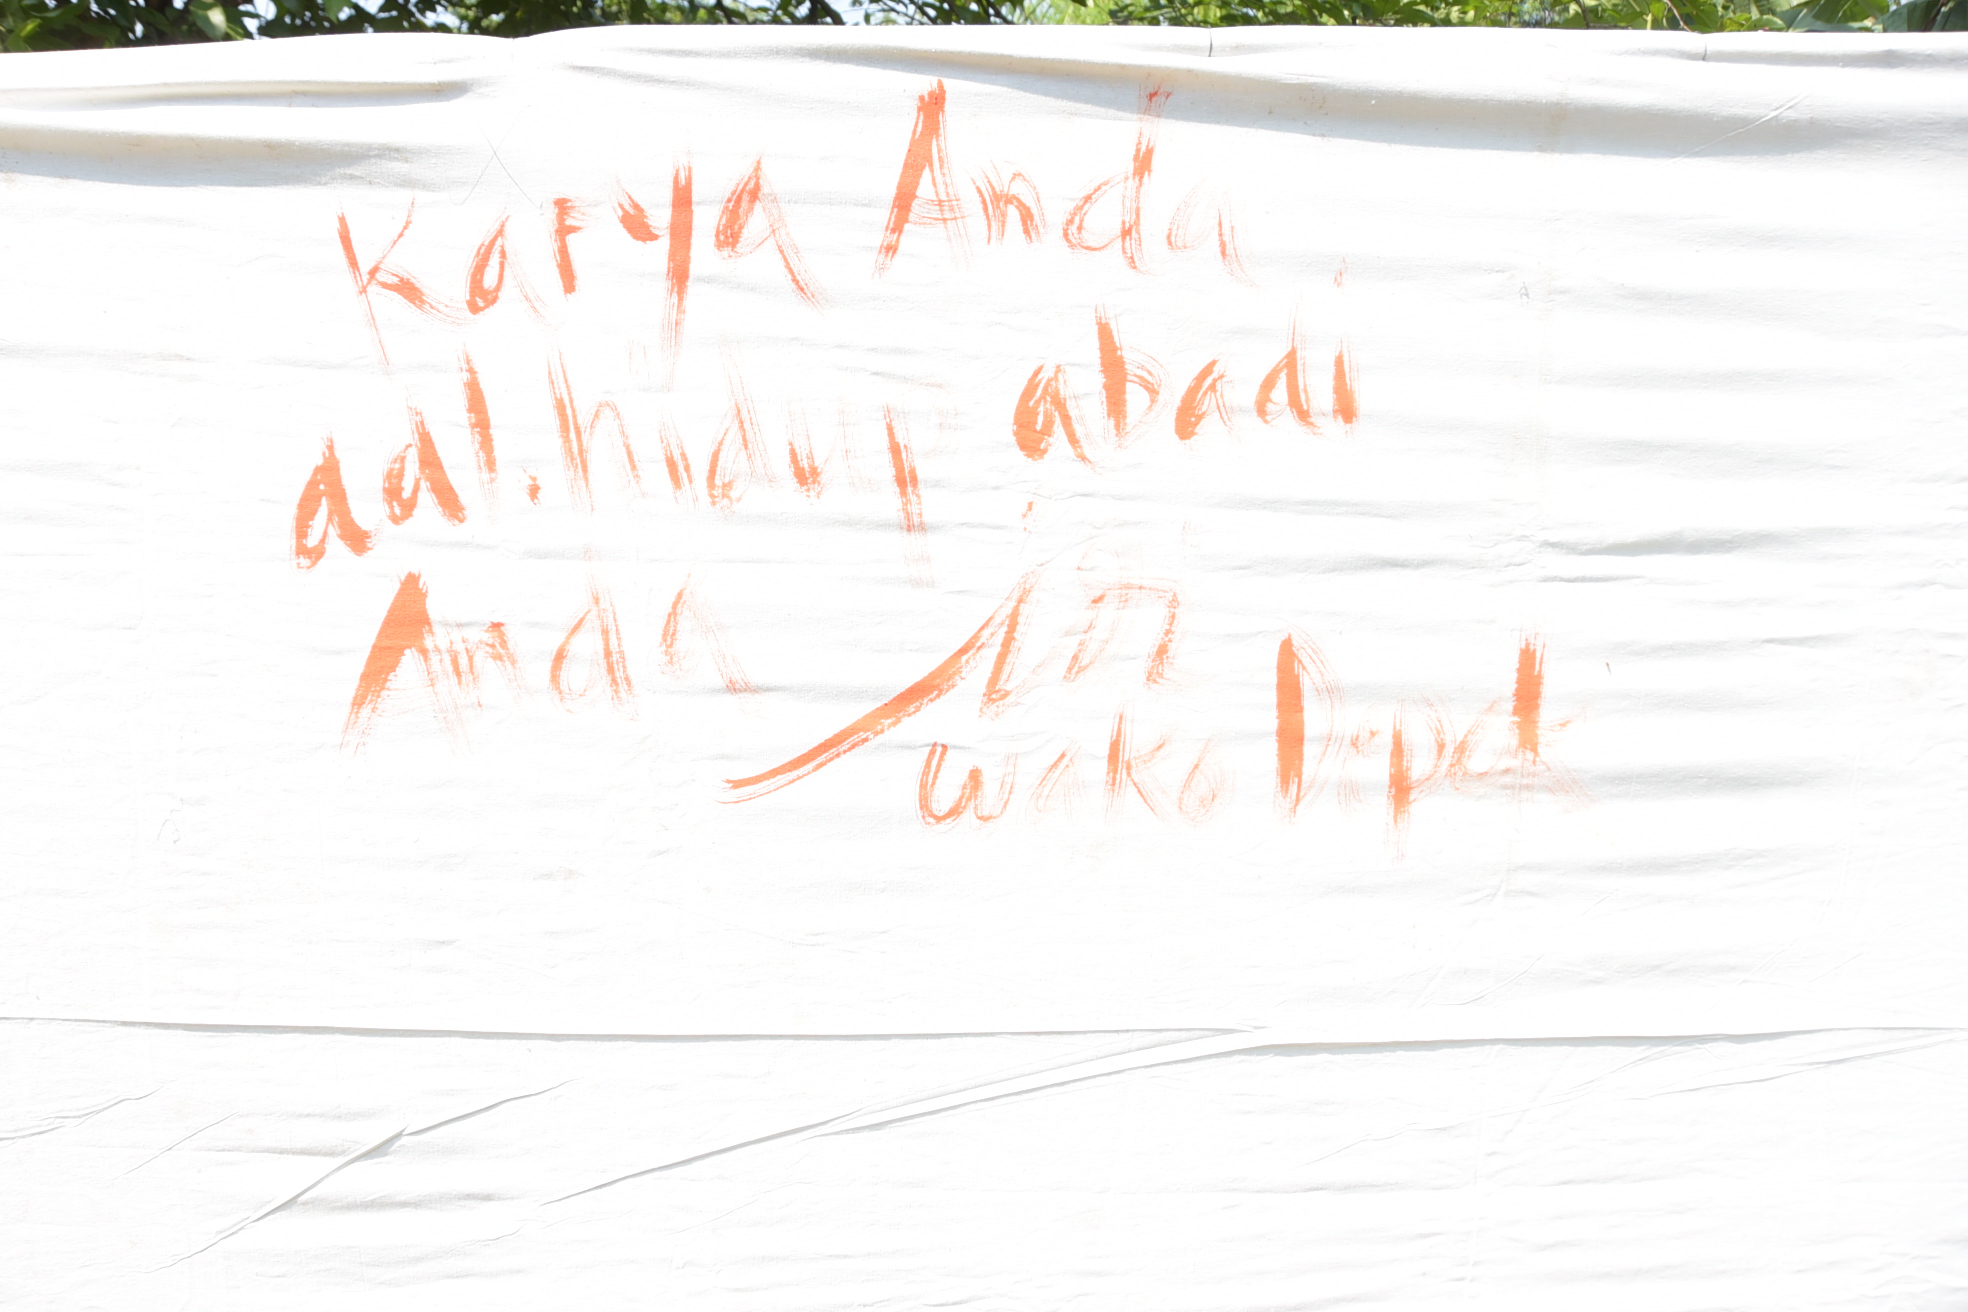 Karya Anda
adl. hidup abadi
Anda
Wako Depok